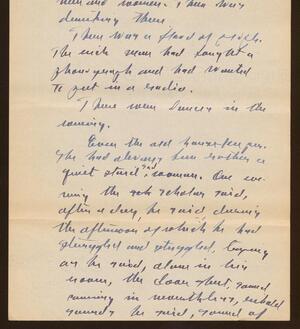 men and women. There was
drinking there.
There was a flood of
The rich man had bought a
phonograph and had wanted
to put in a radio.
There were dances in the
evening.
Even the old housekeeper.
She had always been rather a
quiet staid, sad, woman. One eve-
ning the scholar said,
after a day, he said during
the afternoon of which he had
struggled and struggled, trying
as he said, alone in his
room, the door shut, sound
coming in nevertheless,
sounds he said, sound of